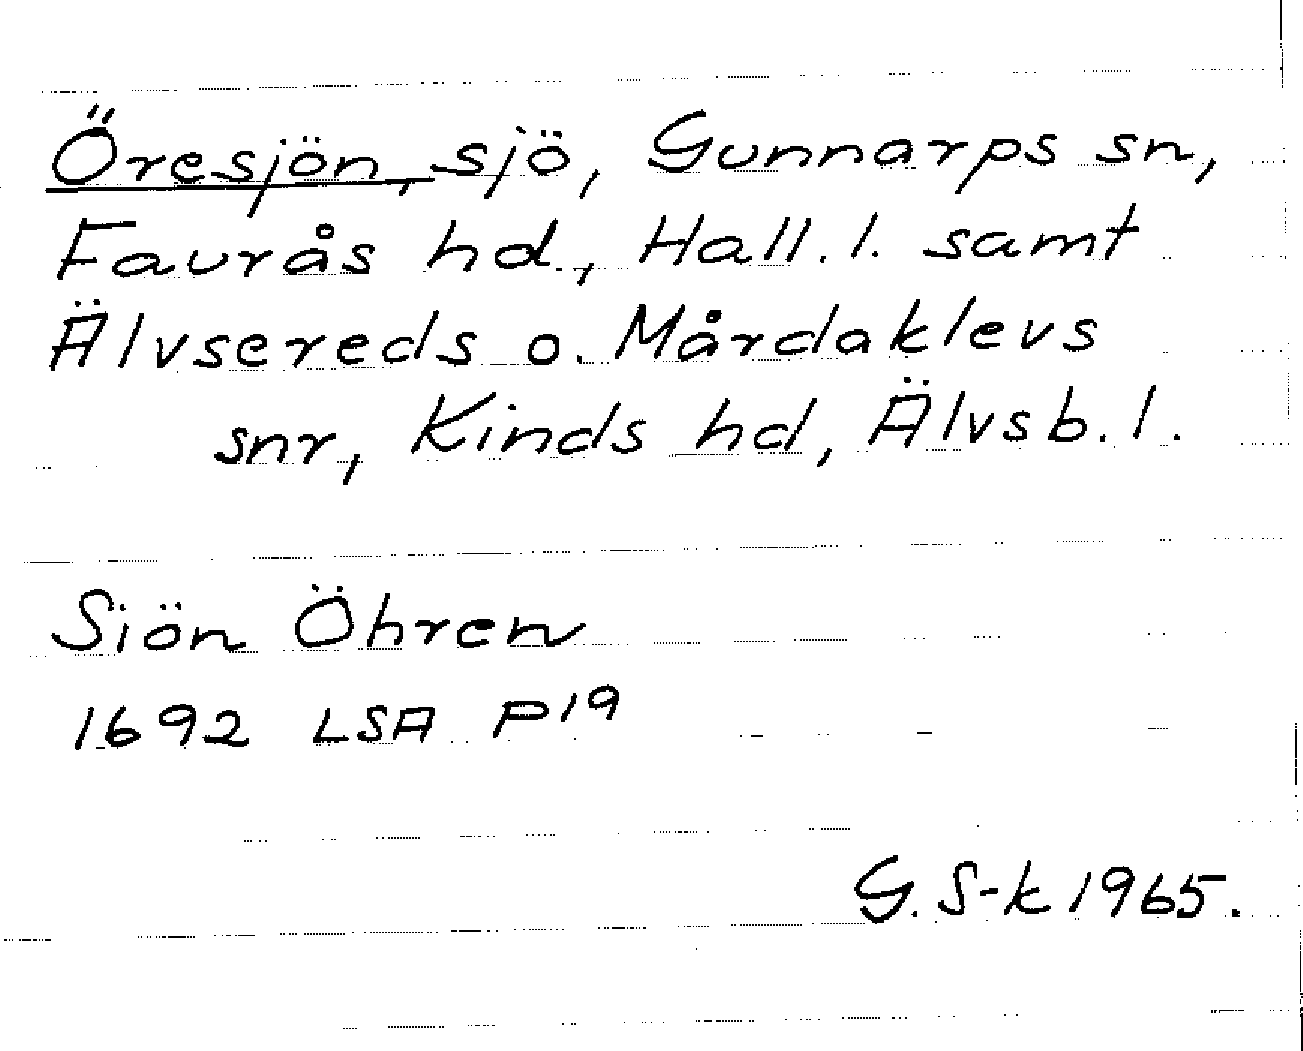 Öresjön, sjö, Gunnarps sn,
Faurås hd., Hall. l. samt
Älvsereds o. Mårdaklevs
snr, Kinds hd, Älvsb. l.
Siön Öhren
1692 LSA P19
G. S-k 1965.